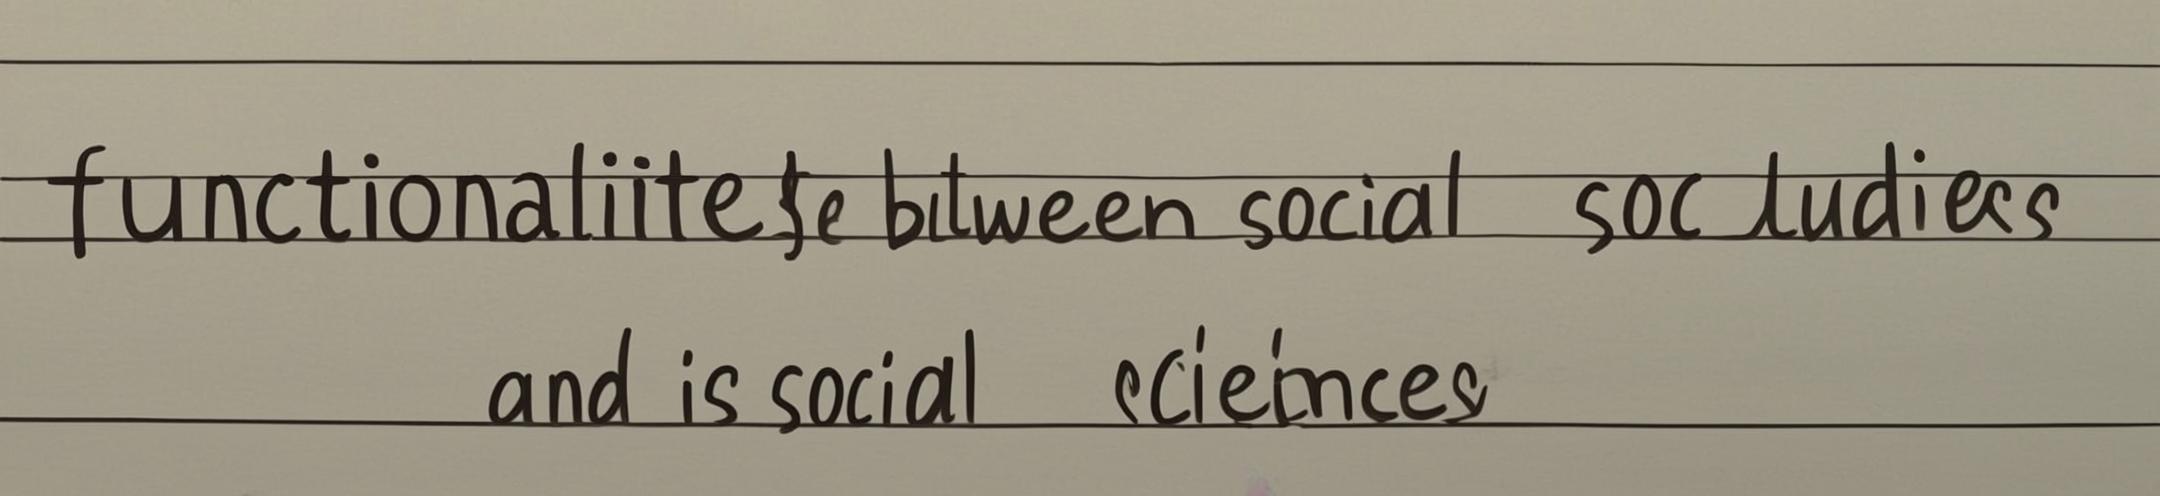 functionaliitese bitween social soc tudiees
and is social scieinces